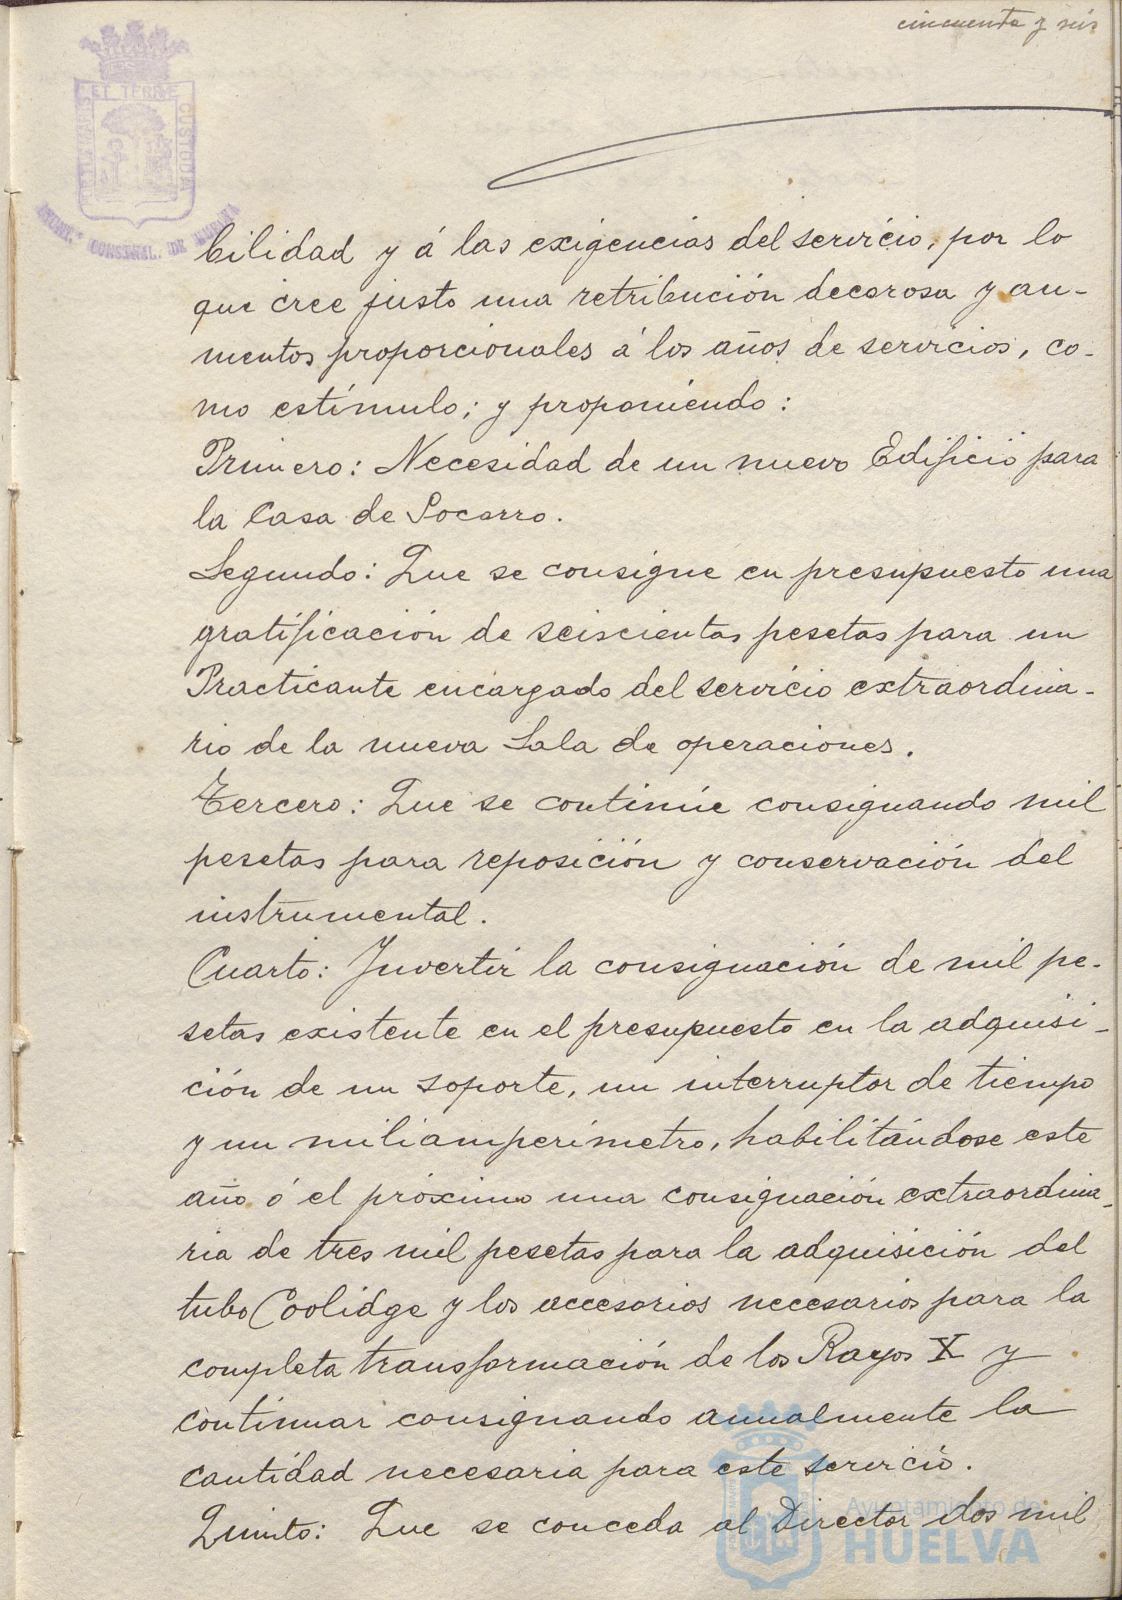 cincuenta y seis
ET TERRÆ
CUSTODIA
CONSTNAL. DE
bilidad y á las exigencias del servicio, por lo
que cree justo una retribución decorosa y au-
mentos proporcionales á los años de servicios, co-
mo estímulo; y proponiendo:
Primero: Necesidad de un nuevo Edificio para
la Casa de Socorro.
Segundo: Que se consigne en presupuesto una
gratificación de seiscientas pesetas para un
Practicante encargado del servicio extraordina-
rio de la nueva Sala de operaciones.
Tercero: Que se continúe consignando mil
pesetas para reposición y conservación del
instrumental.
Cuarto: Invertir la consignación de mil pe-
setas existente en el presupuesto en la adquisi-
ción de un soporte, un interruptor de tiempo
y un miliamperímetro, habilitándose este
año ó el próximo una consignación extraordina-
ria de tres mil pesetas para la adquisición del
tubo Coolidge y los accesorios necesarios para la
completa transformación de los Rayos X y
continuar consignando anualmente la
cantidad necesaria para este servicio.
Quinto: Que se conceda al Director dos mil
Ayuntamiento de
HUELVA